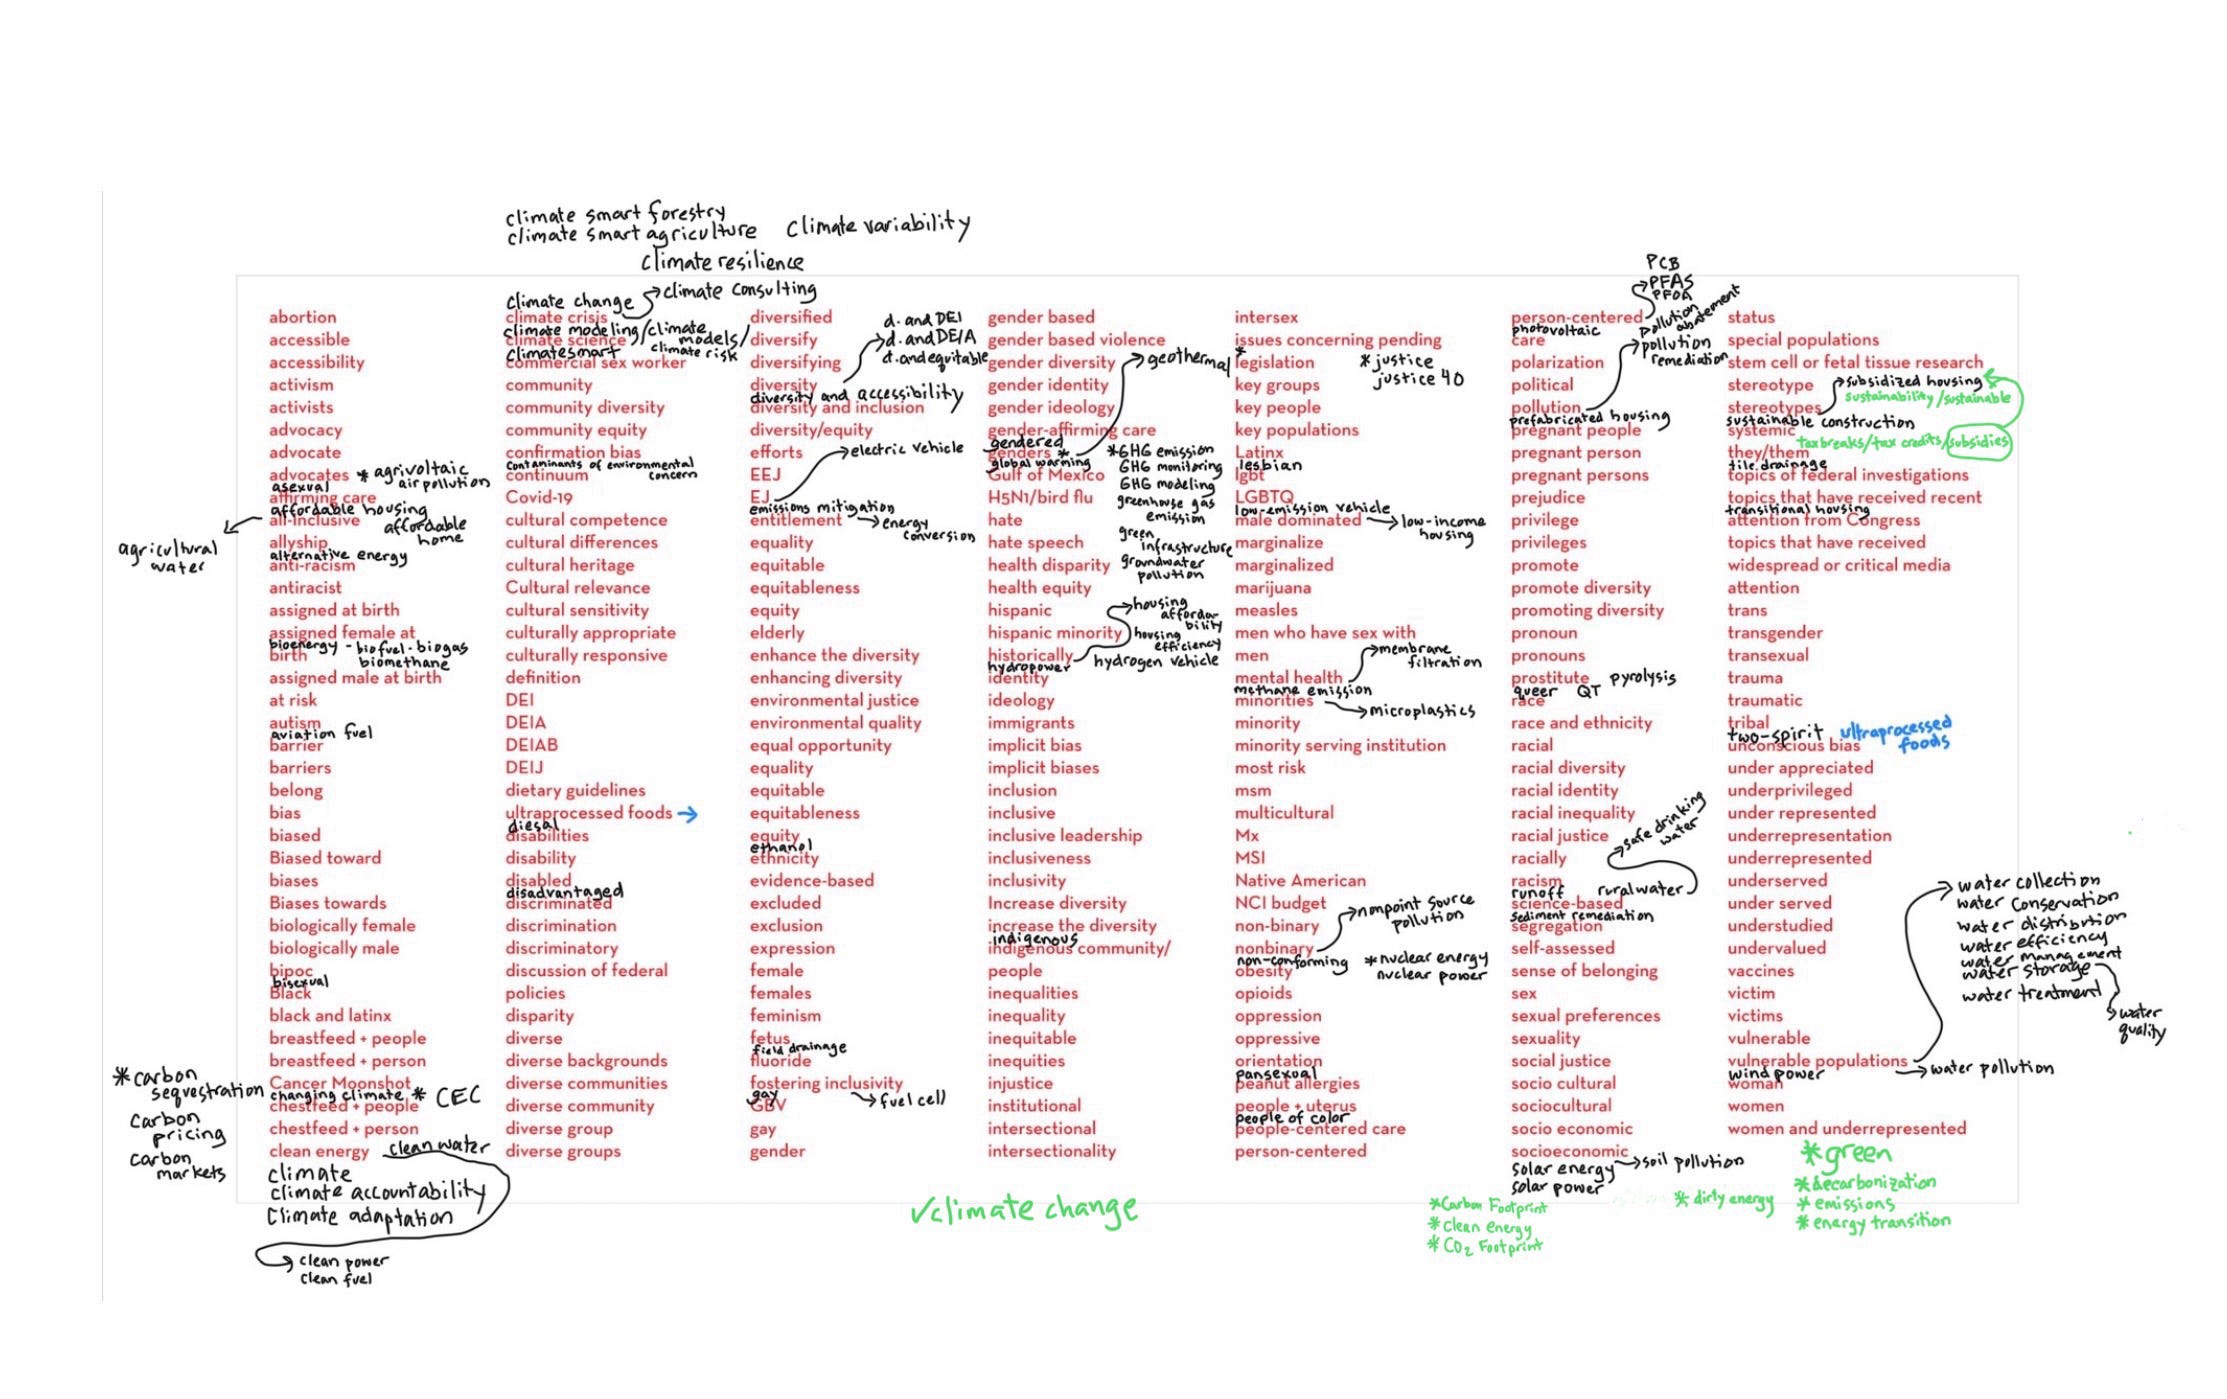 climate smart forestry
climate smart agriculture
climate variability
climate resilience
abortion
accessible
accessibility
activism
activists
advocacy
advocate
advocates
* agrivoltaic
air pollution
asexual
affirming care
affordable housing
all-inclusive
affordable
home
agricultural
water
allyship
alternative energy
anti-racism
antiracist
assigned at birth
assigned female at
bioenergy - biofuel - biogas
birth
biomethane
assigned male at birth
at risk
autism
aviation fuel
barrier
barriers
belong
bias
biased
Biased toward
biases
Biases towards
biologically female
biologically male
bipoc
bisexual
Black
black and latinx
breastfeed + people
breastfeed + person
Cancer Moonshot
* carbon
sequestration
carbon
pricing
carbon
markets
changing climate * CEC
chestfeed + people
chestfeed + person
clean energy
clean water
climate
climate accountability
climate adaptation
clean power
clean fuel
climate change
climate consulting
climate crisis
climate modeling/climate
models/
climate science
climate risk
climatesmart
commercial sex worker
community
community diversity
community equity
confirmation bias
contaminants of environmental
concern
continuum
Covid-19
cultural competence
cultural differences
cultural heritage
Cultural relevance
cultural sensitivity
culturally appropriate
culturally responsive
definition
DEI
DEIA
DEIAB
DEIJ
dietary guidelines
ultraprocessed foods →
diesal
disabilities
disability
disabled
disadvantaged
discriminated
discrimination
discriminatory
discussion of federal
policies
disparity
diverse
diverse backgrounds
diverse communities
diverse community
diverse group
diverse groups
diversified
diversify
diversifying
diversity
d. and DEI
d. and DE/A
d. and equitable
diversity and accessibility
diversity and inclusion
diversity/equity
efforts
EEJ
EJ
electric vehicle
emissions mitigation
entitlement
energy
conversion
equality
equitable
equitableness
equity
elderly
enhance the diversity
enhancing diversity
environmental justice
environmental quality
equal opportunity
equality
equitable
equitableness
equity
ethanol
ethnicity
evidence-based
excluded
exclusion
expression
female
females
feminism
fetus
field drainage
fluoride
fostering inclusivity
fuel cell
gay
GBV
gay
gender
gender based
gender based violence
gender diversity
gender identity
gender ideology
gender-affirming care
gendered
genders *
geothermal
global warming
*GHG emission
GHG monitoring
GHG modeling
greenhouse gas
emission
green
infrastructure
groundwater
pollution
Gulf of Mexico
H5N1/bird flu
hate
hate speech
health disparity
health equity
hispanic
hispanic minority
historically
housing
afforda-
bility
housing
efficiency
hydropower
hydrogen vehicle
identity
ideology
immigrants
implicit bias
implicit biases
inclusion
inclusive
inclusive leadership
inclusiveness
inclusivity
Increase diversity
increase the diversity
indigenous
indigenous community/
people
inequalities
inequality
inequitable
inequities
injustice
institutional
intersectional
intersectionality
intersex
issues concerning pending
*
legislation
* justice
justice 40
key groups
key people
key populations
Latinx
lesbian
lgbt
LGBTQ
low-emission vehicle
male dominated
low-income
housing
marginalize
marginalized
marijuana
measles
men who have sex with
men
mental health
membrane
filtration
methane emission
minorities
microplastics
minority
minority serving institution
most risk
msm
multicultural
Mx
MSI
Native American
NCI budget
non-binary
nonbinary
nonpoint source
pollution
non-conforming
* nuclear energy
nuclear power
obesity
opioids
oppression
oppressive
orientation
pansexual
peanut allergies
people + uterus
people of color
people-centered care
person-centered
PCB
PFAS
PFOA
person-centered
photovoltaic
care
polarization
political
pollution
pollution
abatement
pollution
remediation
prefabricated housing
pregnant people
pregnant person
pregnant persons
prejudice
privilege
privileges
promote
promote diversity
promoting diversity
pronoun
pronouns
prostitute
pyrolysis
queer QT
race
race and ethnicity
racial
racial diversity
racial identity
racial inequality
racial justice
racially
racism
safe drinking
water
runoff
rural water
science-based
sediment remediation
segregation
self-assessed
sense of belonging
sex
sexual preferences
sexuality
social justice
socio cultural
sociocultural
socio economic
socioeconomic
soil pollution
solar energy
solar power
status
special populations
stem cell or fetal tissue research
stereotype
subsidized housing
sustainability/sustainable
stereotypes
sustainable construction
systemic
tax breaks/tax credits/subsidies
they/them
tile drainage
topics of federal investigations
topics that have received recent
transitional housing
attention from Congress
topics that have received
widespread or critical media
attention
trans
transgender
transexual
trauma
traumatic
tribal
two-spirit
ultraprocessed
foods
unconscious bias
under appreciated
underprivileged
under represented
underrepresentation
underrepresented
underserved
under served
understudied
undervalued
vaccines
victim
victims
vulnerable
vulnerable populations
water collection
water conservation
water distribution
water efficiency
water management
water storage
water treatment
water
quality
water pollution
wind power
woman
women
women and underrepresented
✓climate change
*Carbon Footprint
*Clean Energy
*CO2 Footprint
* dirty energy
*green
*decarbonization
*emissions
*energy transition